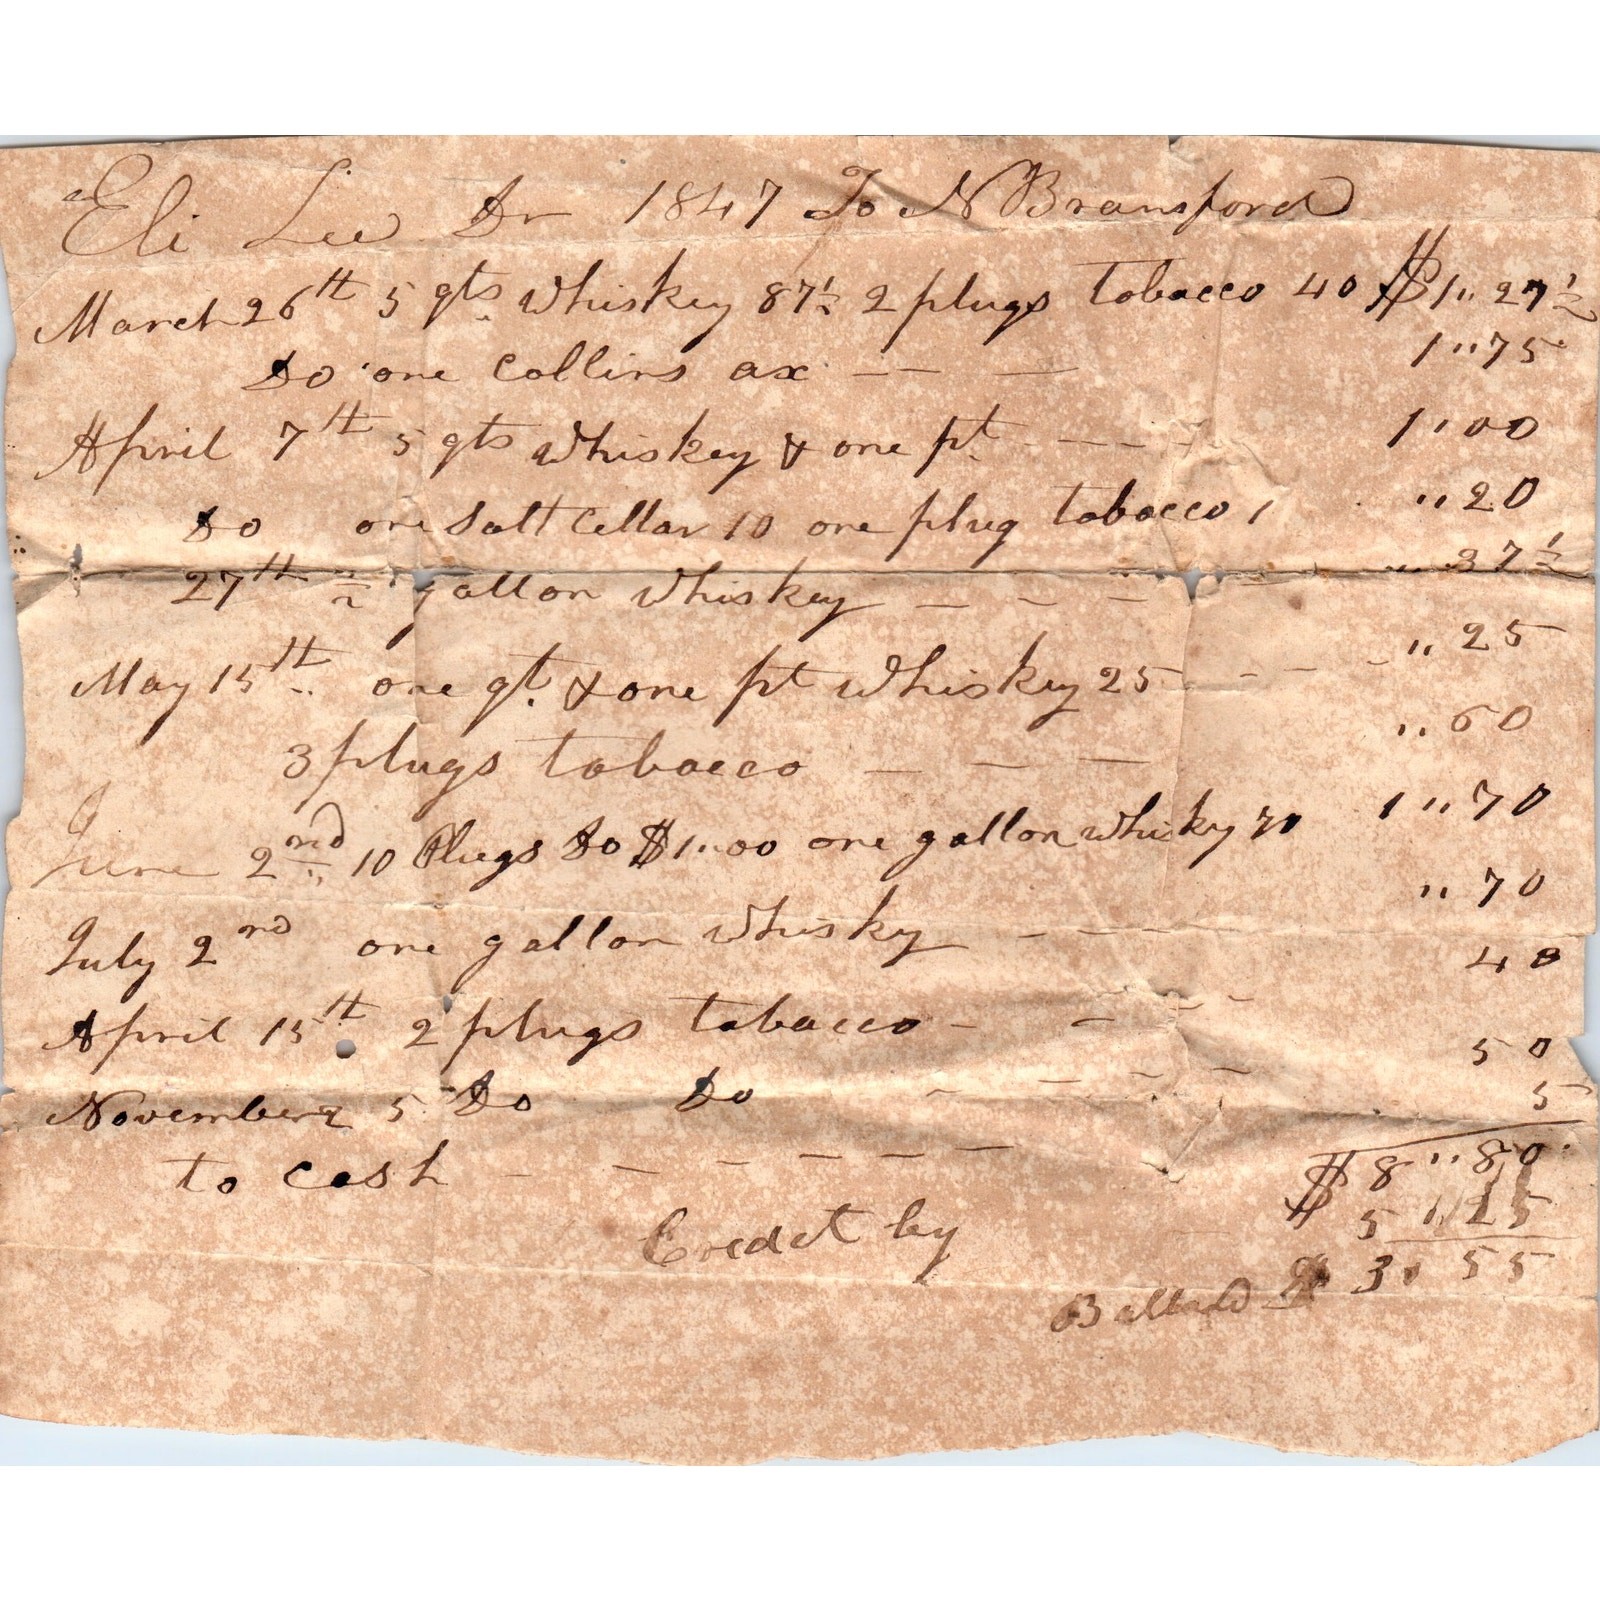 Eli Lee Dr 1847 To N Bransford
March 26th 5 qts whiskey 87½ 2 plugs tobacco 40 $1"27½
Do one collins ax - - - 1"75
April 7th 5 qts whiskey & one pt - - - 1"00
Do one Salt Cellar 10 one plug tobacco 1 "20
27th ½ gallon whiskey - - - "37½
May 15th one qt & one pt whiskey 25 - - - "25
3 plugs tobacco - - - "60
June 2nd 10 Plugs Do $1"00 one gallon whisky 70 1"70
July 2nd one gallon whisky - - - "70
April 15th 2 plugs tobacco - - - - 40
November 5 Do Do - - - - 50
to cash - - - - - - 5
$8"80
Credet by 5"25
$3"55